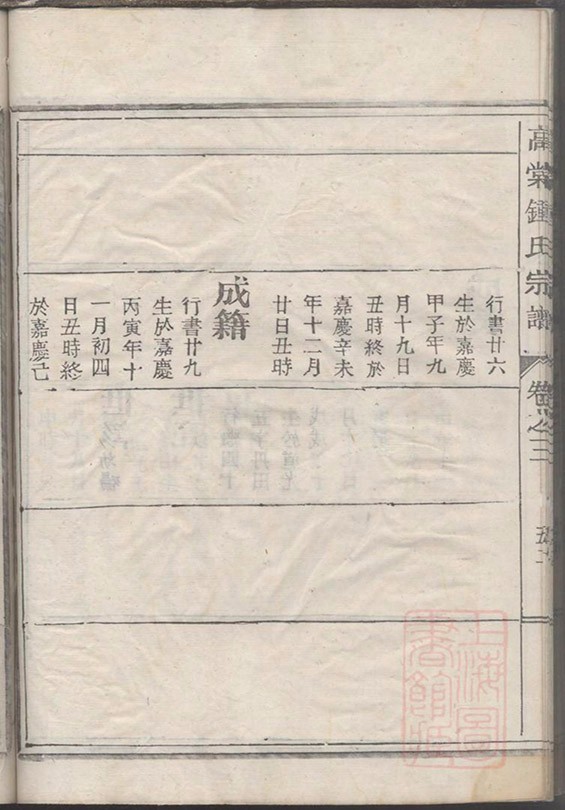 高棠鍾氏宗譜
卷之三
行書廿六
生於嘉慶
甲子年九
月十九日
丑時終於
嘉慶辛未
年十二月
廿日丑時
成籍
行書廿九
生於嘉慶
丙寅年十
一月初四
日丑時終
於嘉慶己
上海圖
書館藏